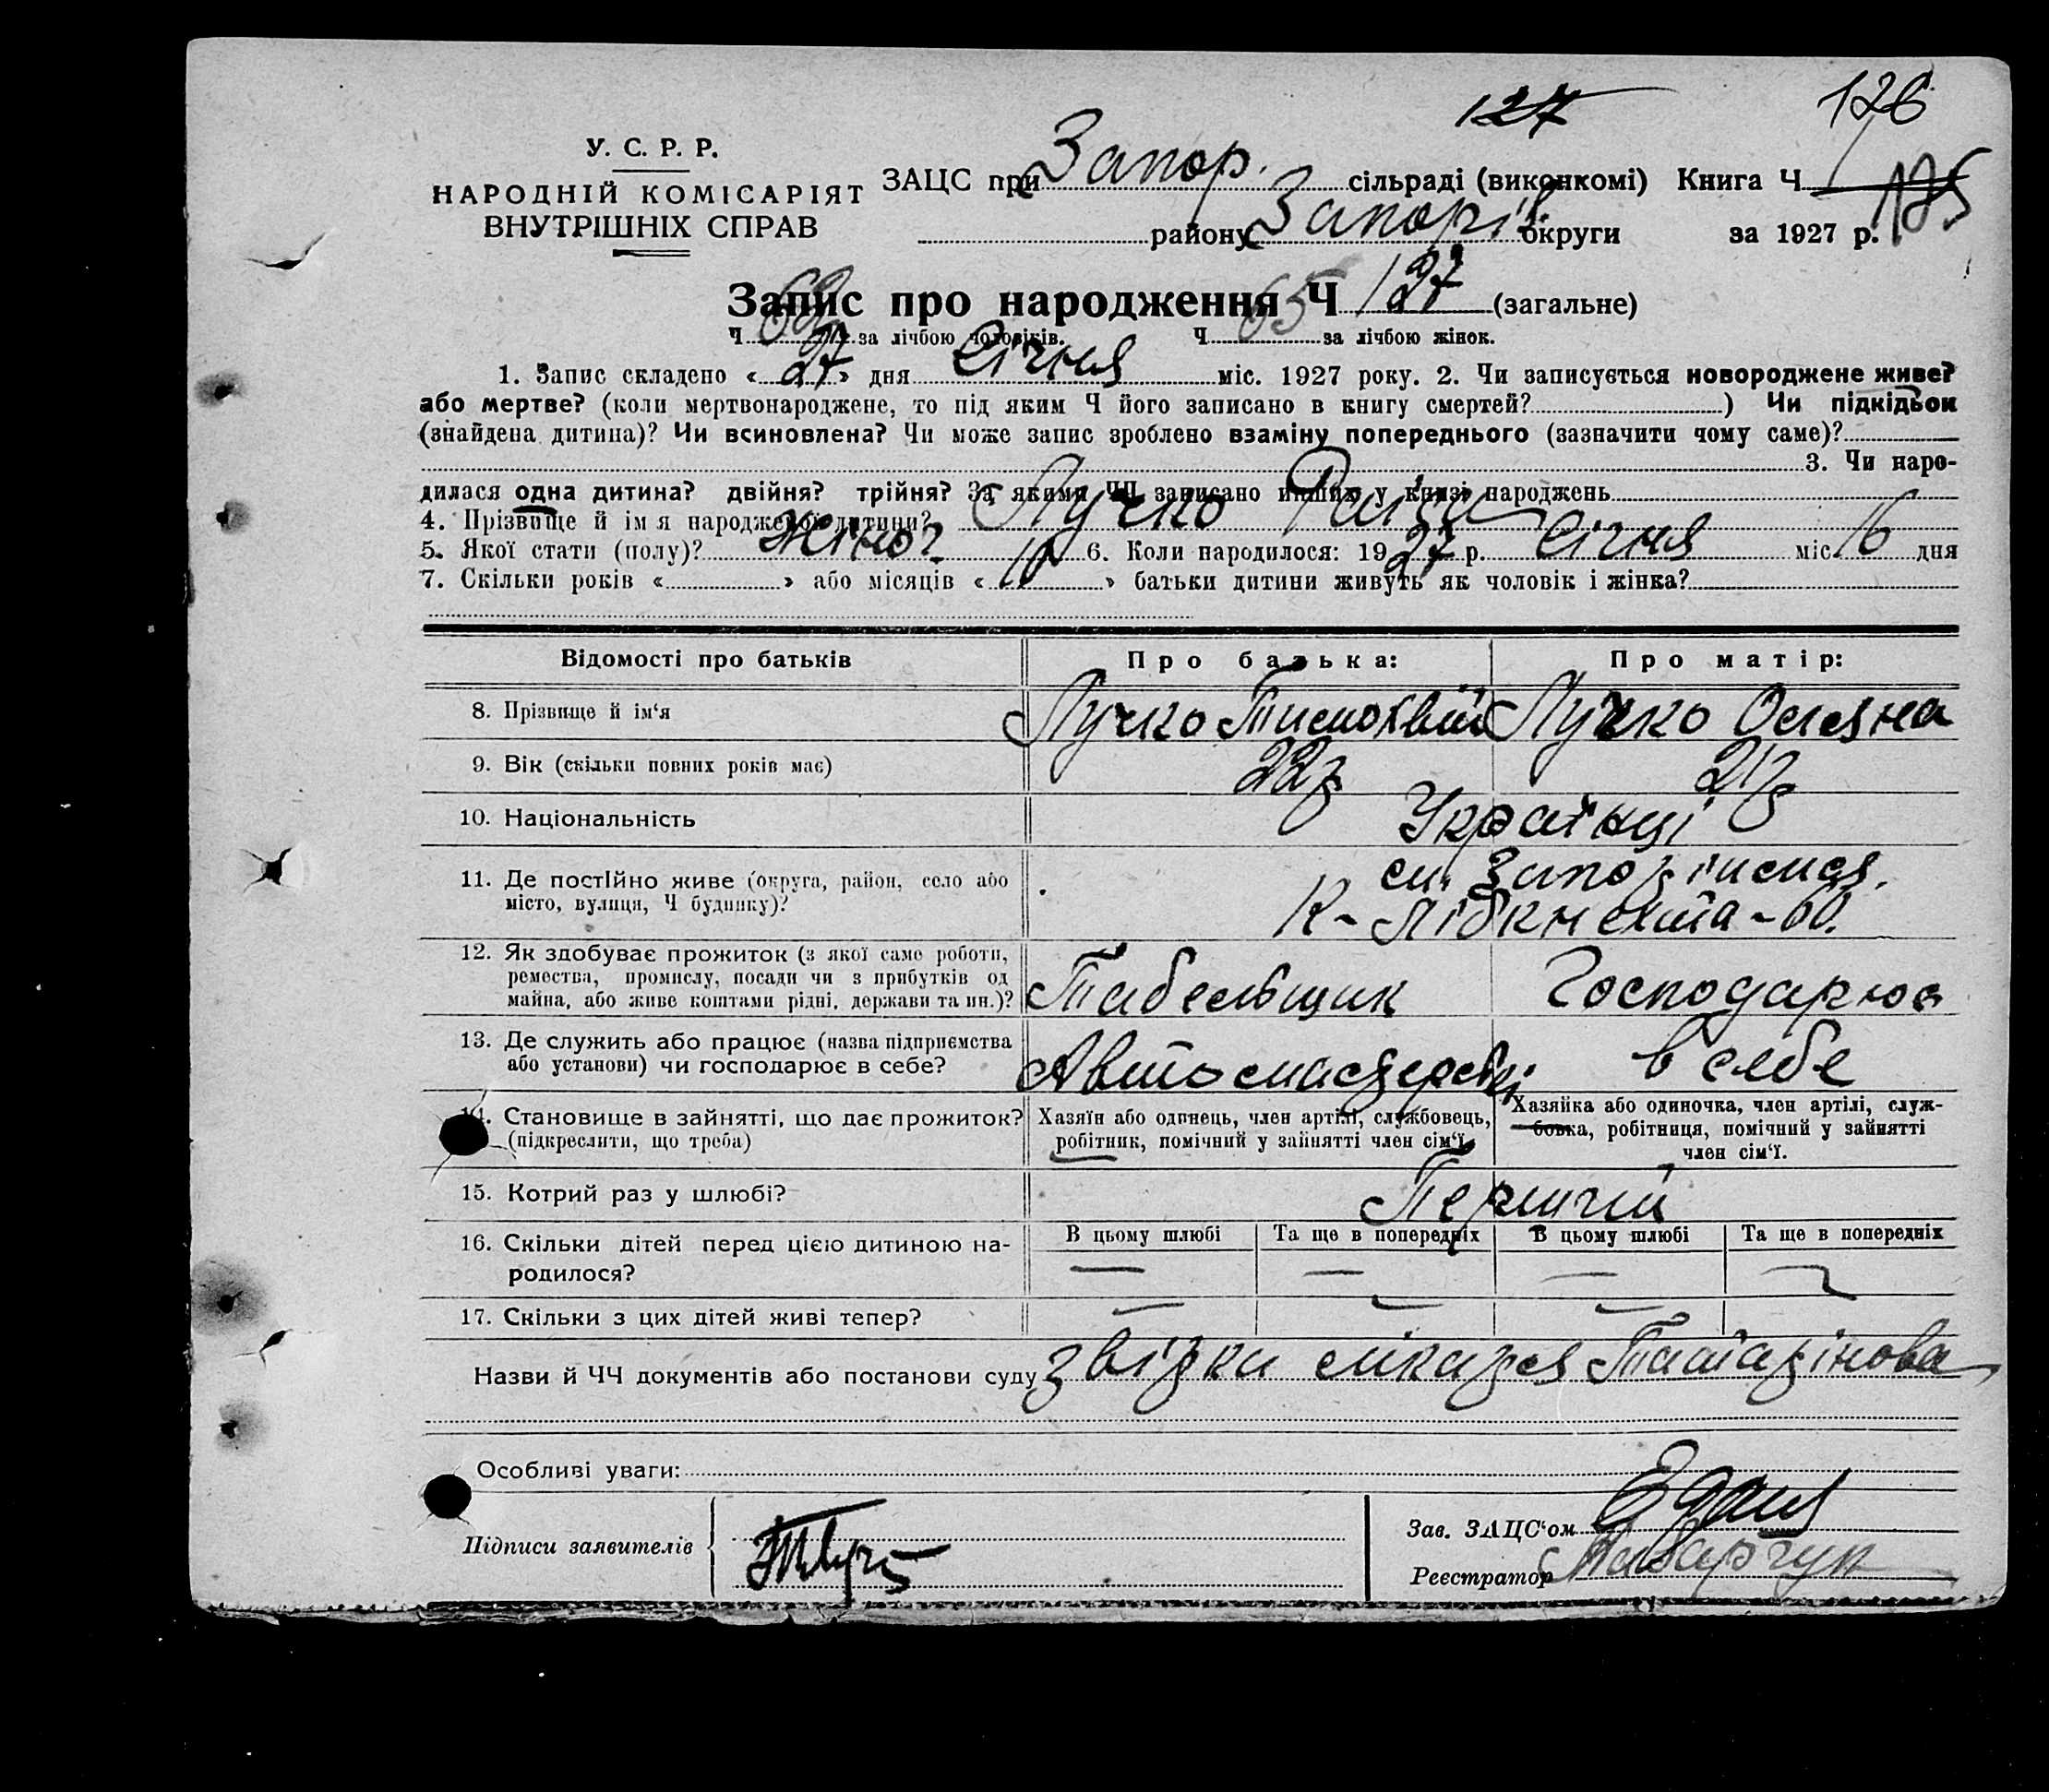 127
126
У. С. Р. Р.
НАРОДНІЙ КОМІСАРІЯТ
ВНУТРІШНІХ СПРАВ
ЗАЦС при Запор. сільраді (виконкомі) Книга Ч 1
району Запоріз. округи за 1927 р.
Запис про народження Ч 127 (загальне)
Ч за лічбою чоловіків. Ч 65 за лічбою жінок.
1. Запис складено « 27 » дня Січня міс. 1927 року. 2. Чи записується новороджене живе?
або мертве? (коли мертвонароджене, то під яким Ч його записано в книгу смертей? ) Чи підкідьок
(знайдена дитина)? Чи всиновлена? Чи може запис зроблено взаміну попереднього (зазначити чому саме)?
3. Чи наро-
дилася одна дитина? двійня? трійня? За якими ЧЧ записано инших у книзі народжень
4. Прізвище й ім я народженої дитини? Лучко Раїса
5. Якої стати (полу)? Жіноч. 6. Коли народилося: 1927 р. Січня міс. 16 дня
7. Скільки років « » або місяців « 10 » батьки дитини живуть як чоловік і жінка?
Відомості про батьків Про батька: Про матір:
8. Прізвище й ім‘я Лучко Тимохвій Лучко Оляна
9. Вік (скільки повних років має) 22 р 21 р
10. Національність Українці
11. Де постійно живе (округа, район, село або
місто, вулиця, Ч будинку)? м. Запоріжжя.
К-Лібкнехта-60.
12. Як здобуває прожиток (з якої саме роботи,
ремества, промислу, посади чи з прибутків од
майна, або живе коштами рідні, держави та ин.)? Табельщик Господарює
13. Де служить або працює (назва підприємства
або установи) чи господарює в себе? Автомастерські в себе
14. Становище в зайнятті, що дає прожиток?
(підкреслити, що треба)
Хазяїн або одинець, член артілі, службовець,
робітник, помічний у зайнятті член сім‘ї.
Хазяйка або одиночка, член артілі, служ-
бовка, робітниця, помічний у зайнятті
член сім‘ї.
15. Котрий раз у шлюбі? Перший
16. Скільки дітей перед цією дитиною на-
родилося?
В цьому шлюбі Та ще в попередніх В цьому шлюбі Та ще в попередніх
— — — —
17. Скільки з цих дітей живі тепер? — — —
Назви й ЧЧ документів або постанови суду звірка лікаря Татарінова
Особливі уваги:
Підписи заявителів
Зав. ЗАЦС‘ом
Реєстратор